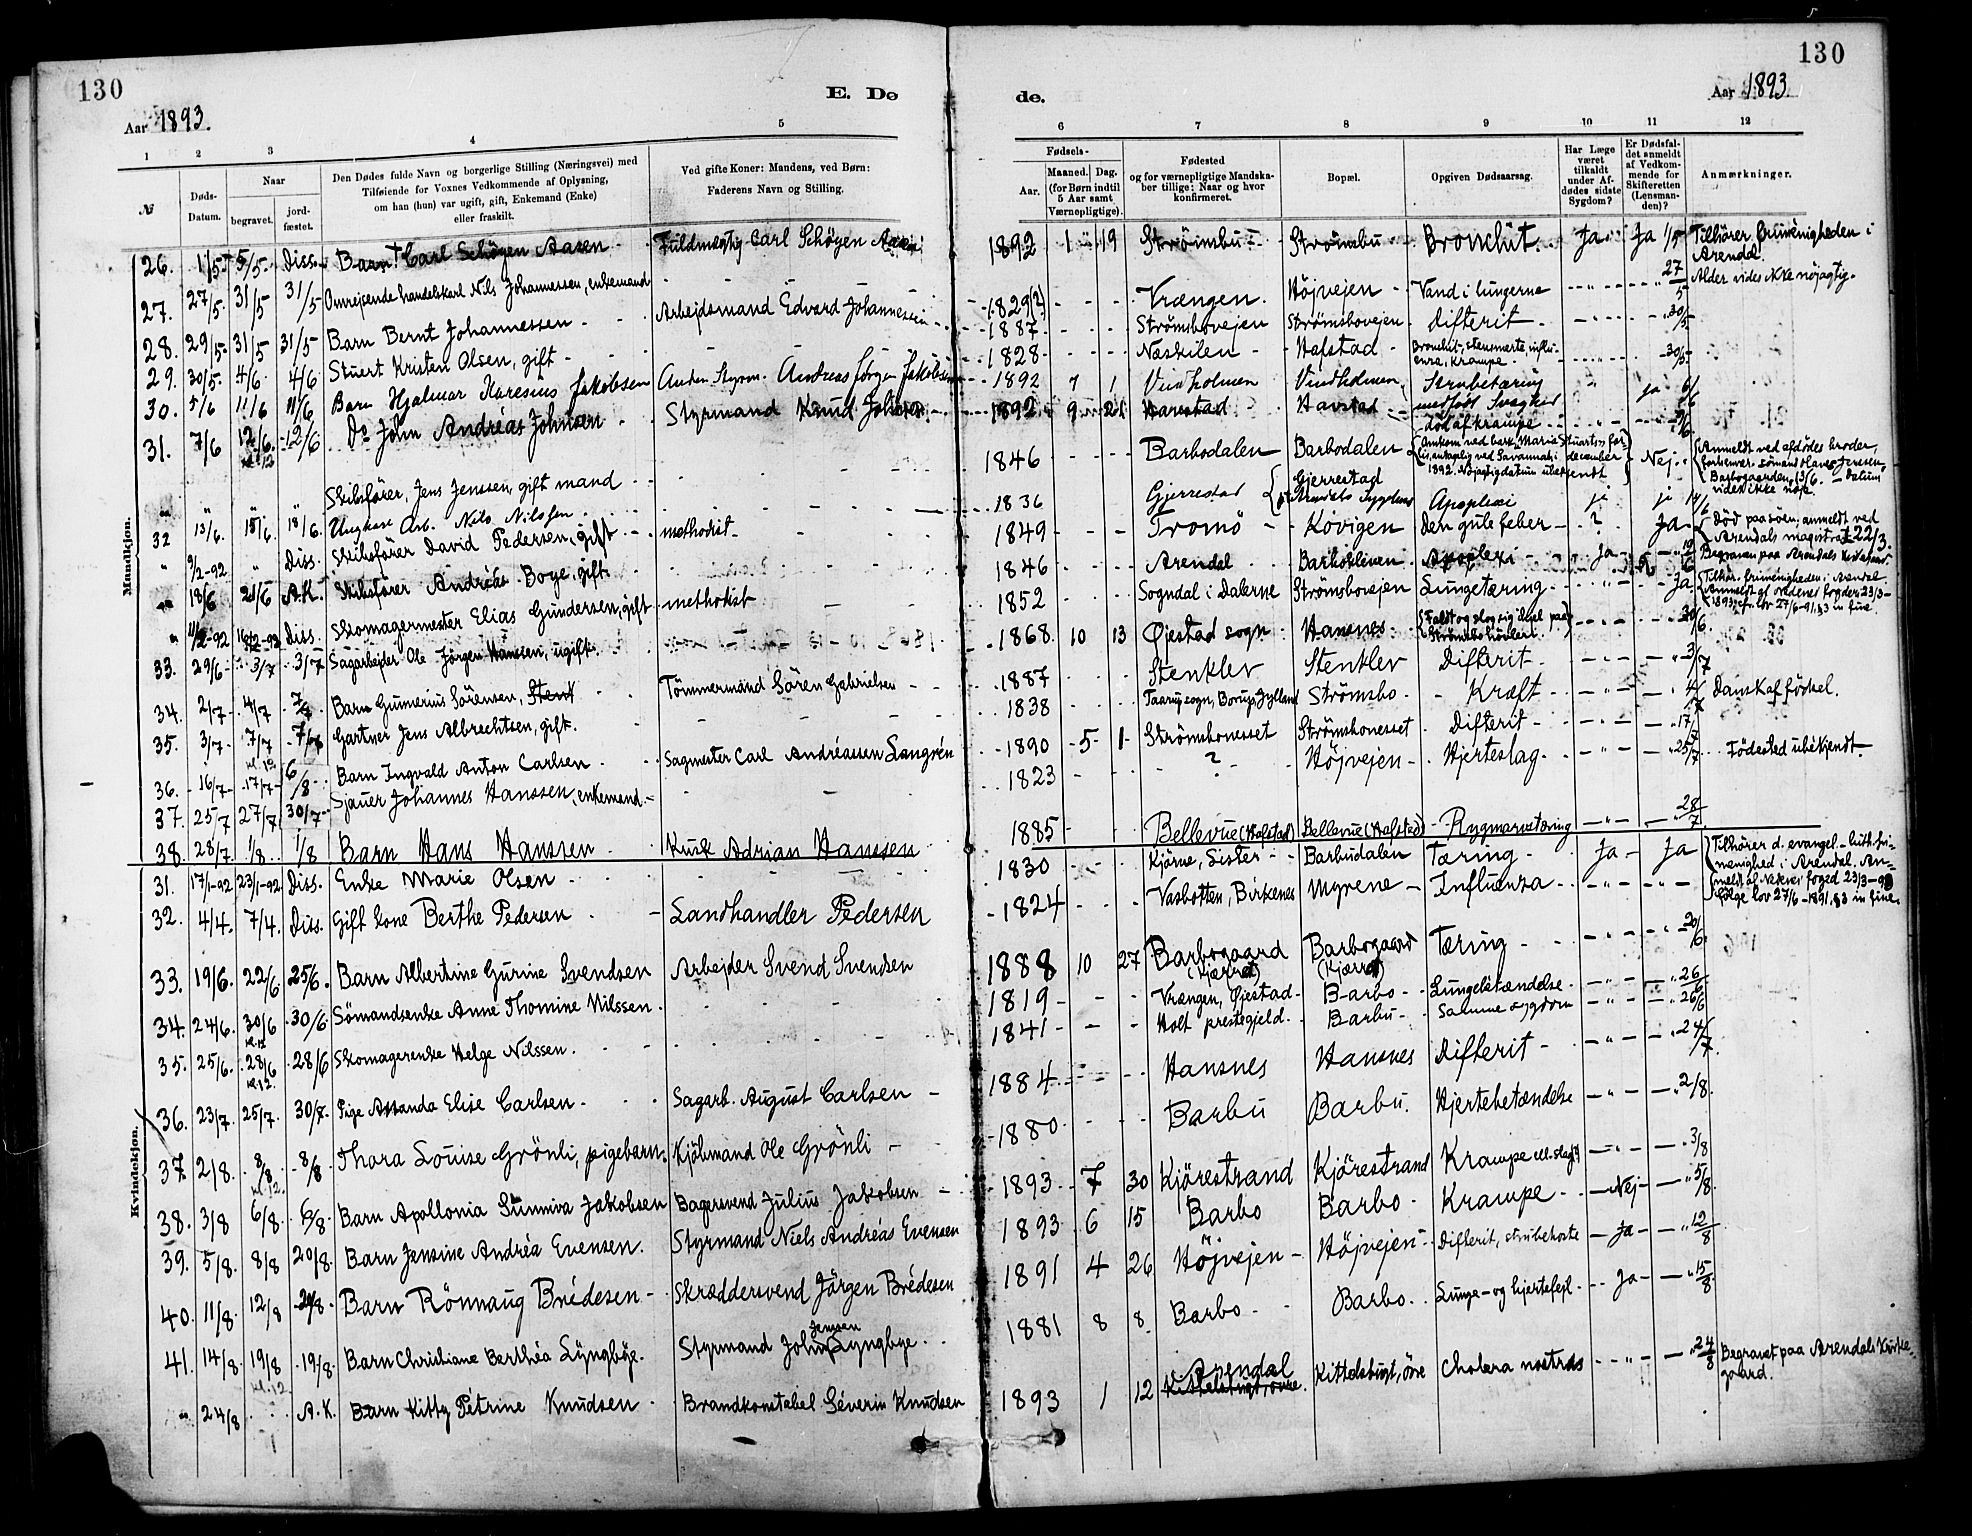 130
130
E. Dø
de.
Aar 1893.
Aar 1893.
1 2 3 4 5 6 7 8 9 10 11 12
№
Døds-
Datum.
Naar
begravet.
jord-
fæstet.
Den Dødes fulde Navn og borgerlige Stilling (Næringsvei) med
Tilføiende for Voxnes Vedkommende af Oplysning,
om han (hun) var ugift, gift, Enkemand (Enke)
eller fraskilt.
Ved gifte Koner: Mandens, ved Børn:
Faderens Navn og Stilling.
Fødsels-
Aar.
Maaned. Dag.
(for Børn indtil
5 Aar samt
Værnepligtige).
Fødested
og for værnepligtige Mandska-
ber tillige: Naar og hvor
konfirmeret.
Bopæl.
Opgiven Dødsaarsag.
Har Læge
været
tilkaldt
under Af-
dødes sidste
Sygdom?
Er Dødsfal-
det anmeldt
af Vedkom-
mende for
Skifteretten
(Lensman-
den)?
Anmærkninger.
Mandkjøn.
26. 1/5 5/5 Diss. Barn Carl Schöyen Aasen Fuldmægtig Carl Schöyen Aasen 1892 1 19 Strömsbu Strömsbu Bronchit Ja Ja 1/5 Tilhörer frimenigheden i Arendal.
27. 27/5 31/5 31/5 Omreisende handelskarl Nils Johannessen, enkemand 1829(?) Vrængen Höjvejen Vand i lungerne 27/5 Alder vides ikke nöjagtig.
28. 29/5 31/5 31/5 Barn Bernt Johannessen Arbejdsmand Edvard Johannessen 1887 Strömsbovejen Strömsbovejen Difterit 30/5
29. 30/5 4/6 4/6 Stuert Kristen Olsen, gift 1828 Næskilen Hafstad Bronchit, influenza, krampe 30/5
30. 5/6 11/6 11/6 Barn Hjalmar Jakobsen Anden Styrm. Andreas Jörgen Jakobsen 1892 7 1 Vindholmen Vindholmen Strubetæring ja 6/6
31. 7/6 12/6 kl. 12 12/6 Do John Andréas Johnsen Styrmand Knud Johnsen 1892 9 21 Havstad Havstad medfödt Svaghed död af krampe
" " Skibsförer, Jens Jenssen, gift mand 1846 Barbodalen Barbodalen december 1892. Nöjagtig datum ubekjendt Nej Anmeldt ved afdödes broder, Barbogaarden, 13/6. Datum vides ikke nöje.
32 13/6 18/6 18/6 Ungkarl Arb. Nils Nilssen 1836 Gjerrestad Gjerrestad Apoplexi ja ja 14/6
" 9/2-92 " Diss. Skibsförer David Pedersen, gift methodist 1849 Tromö Kovigen Den gule feber ? Ja Död paa söen, anmeldt ved Arendals magistrat 22/3.
" 18/6 21/6 A.K. Skibsförer Andréas Boye, gift 1846 Arendal Barbokleven Apoplexi Ja 19/6 Begraven paa Arendals kirkegaard.
" 11/2-92 Diss. Skomagermester Elias Gundersen, gift methodist 1852 Sogndal i Dalerne Strömsbovejen Lungetæring Ja
33. 29/6 3/7 3/7 Sagarbejder Ole Jörgen Hanssen, ugift 1868 10 13 Øjestad sogn Hansnes Faldt og slog sig ihjel paa 30/6
34. 2/7 4/7 7/7 Barn Gumerius Sörensen, Tömmermand Sören Gabrielsen 1887 Stenklev Stenklev Difterit 3/7
35. 3/7 7/7 kl. 12 7/7 Gartner Jens Albrechtsen, gift. 1838 Taarup sogn, Borup, Jylland Strömsbo Kræft 4/7 Dansk af födsel.
36. 16/7 17/7 6/8 Barn Ingvald Anton Carlsen Sagmester Carl Andréassen Langvén 1890 5 1 Strömsbonesset Strömsbonesset Difterit 17/7
37. 25/7 27/7 30/7 Sjauer Johannes Hanssen, enkemand. 1823 ? Höjvejen Hjerteslag 25/7 Födested ubekjendt
38. 28/7 1/8 1/8 Barn Hans Hanssen Kusk Adrian Hanssen 1885 Bellevue (Hafstad) Bellevue (Hafstad) Rygmarvstæring 28/7
Kvindekjøn.
31. 17/1-92 23/1-92 Diss. Enke Marie Olsen 1830 Kjörne, Lister Barbudalen Tæring Ja Ja Tilhörer d. evangel.-luth. frimenighed i Arendal.
32. 4/4. 7/4. Diss. Gift kone Berthe Pedersen Landhandler Pedersen 1824 Vasbotten, Birkenes Myrene Influenza lov 27/6-1891.
33. 19/6 22/6 25/6. Barn Albertine Gurine Svendsen Arbejder Svend Svendsen 1888 10 27 Barbogaard (Kjærret) Barbogaard (Kjærret) Tæring 20/6
34. 24/6. 30/6 kl. 12 30/6. Sömandsenke Anne Thomine Nilssen. 1819 Vrængen, Øjestad Barbo Lungebetændelse 26/6
35. 25/6. 28/6 kl. 12. 28/6 Skomagerenke Helge Nilssen. 1841 Holt prestegjeld. Barbu Samme sygdom 26/6
36. 23/7. 25/7. 30/7. Pige Amanda Elise Carlsen Sagarb. August Carlsen 1884 Hansnes Hansnes Difterit 24/7
37. 2/8. 8/8 kl. 12. 8/8. Thora Louise Grönli, pigebarn. Kjöbmand Ole Grönli 1880 Barbu Barbu. Hjertebetændelse 2/8.
38. 3/8 6/8 6/8. Barn Apollonia Sunniva Jakobsen Bagersvend Julius Jakobsen 1893 7 30 Kjörestrand Kjörestrand Krampe ell. slag(?) 3/8
39. 5/8. 8/8 20/8. Barn Jensine Andréa Evensen. Styrmand Niels Andréas Evensen 1893 6 15 Barbo Barbo Krampe Nej 5/8.
40. 11/8. 12/8 20/8. Barn Rönnaug Brédesen Skræddersvend Jörgen Brédesen 1891 4 26 Höjvejen Höjvejen Difterit, strubehoste Ja 12/8
41. 14/8. 19/8 kl. 12 19/8. Barn Christiane Berthéa Lyngbye. Styrmand John Jenssen Lyngbye 1881 8 8. Barbo Barbo Lunge- og hjertefejl. Ja 15/8.
" 24/8 A.K. Barn Kitty Pétrine Knudsen Brandkonstabel Séverin Knudsen 1893 1 12 Arendal Kittelsbugt, övre. Kittelsbugt, övre Cholera nostras 24/8 Begravet paa Arendals Kirkegaard.